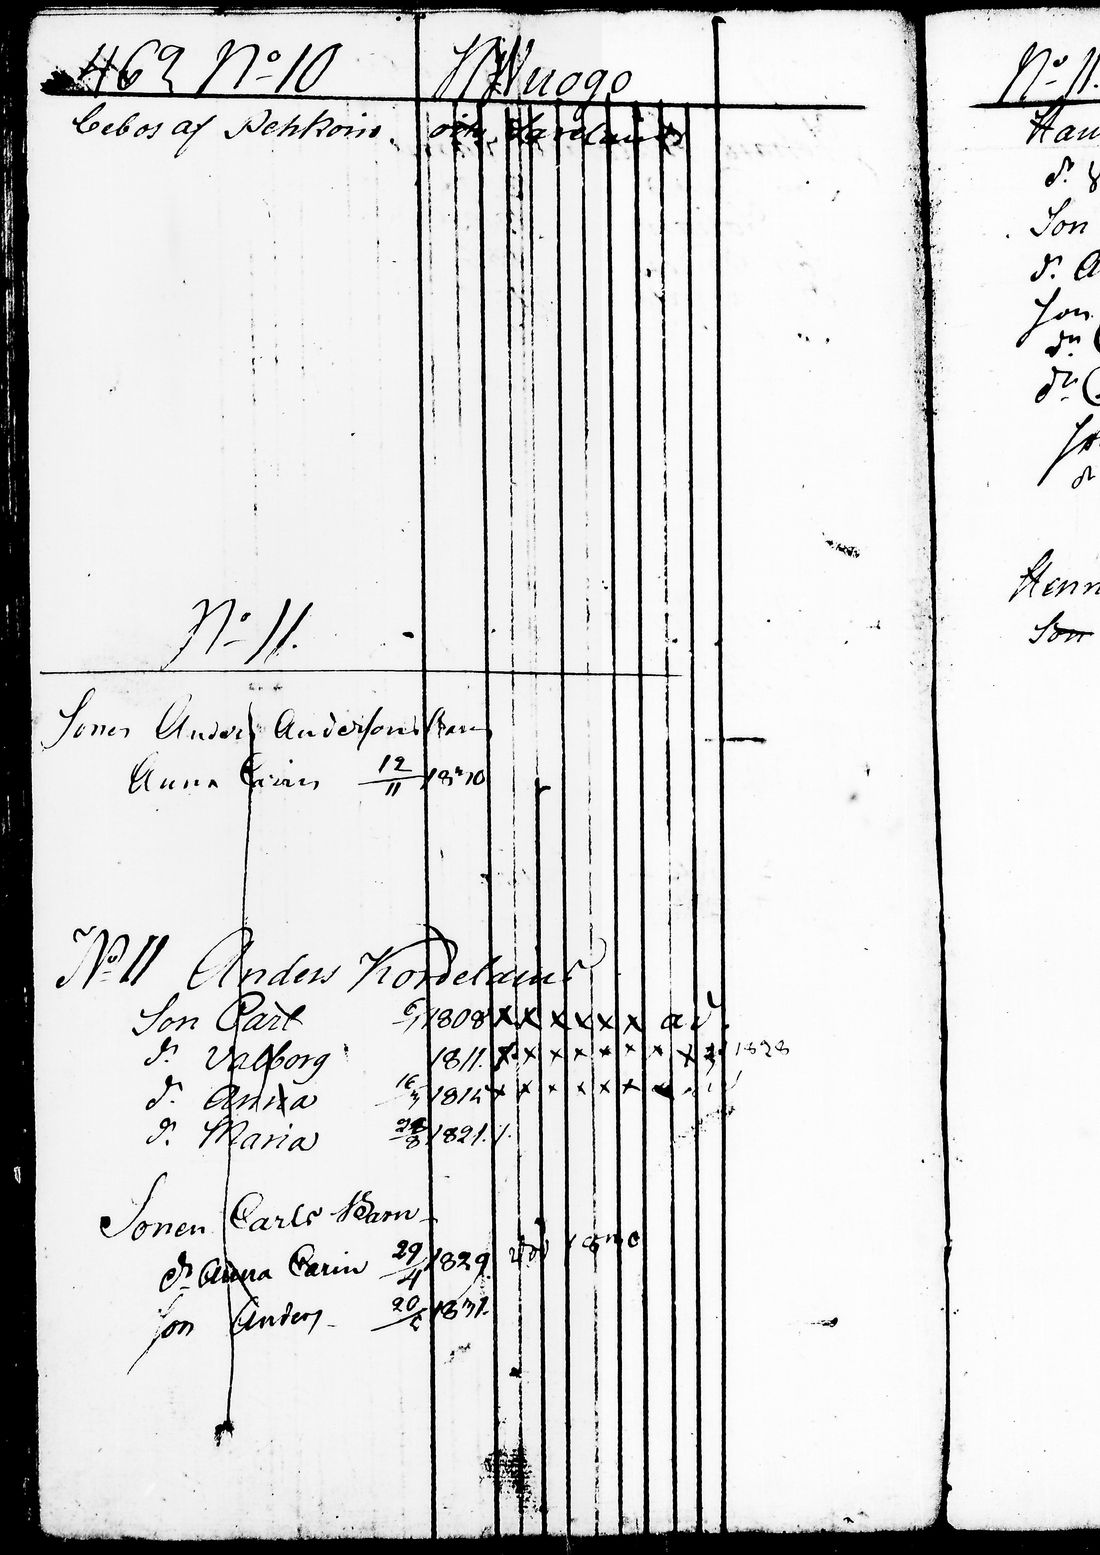 462 No 10
bebos af Rehkoin och Kardelains
No 11.
Sonen Anders Andersons Barn
Anna Carin 12/11 1830
No 11 Anders Kordelains
Son Carl 6/1 1808 x x x x x x ad.
dr Valborg 1811. x x x x x x x x 1828
dr. Anna 16/3 1815 x x x x x x
dr. Maria 28/8 1821. /.
Sonen Carls Barn
dr Anna Carin 29/4 1829. död 1830
Son Anders 20/5 1831.
No 11.
dr.
Son
dr. A
Son
dr
dr C
Henn
Son